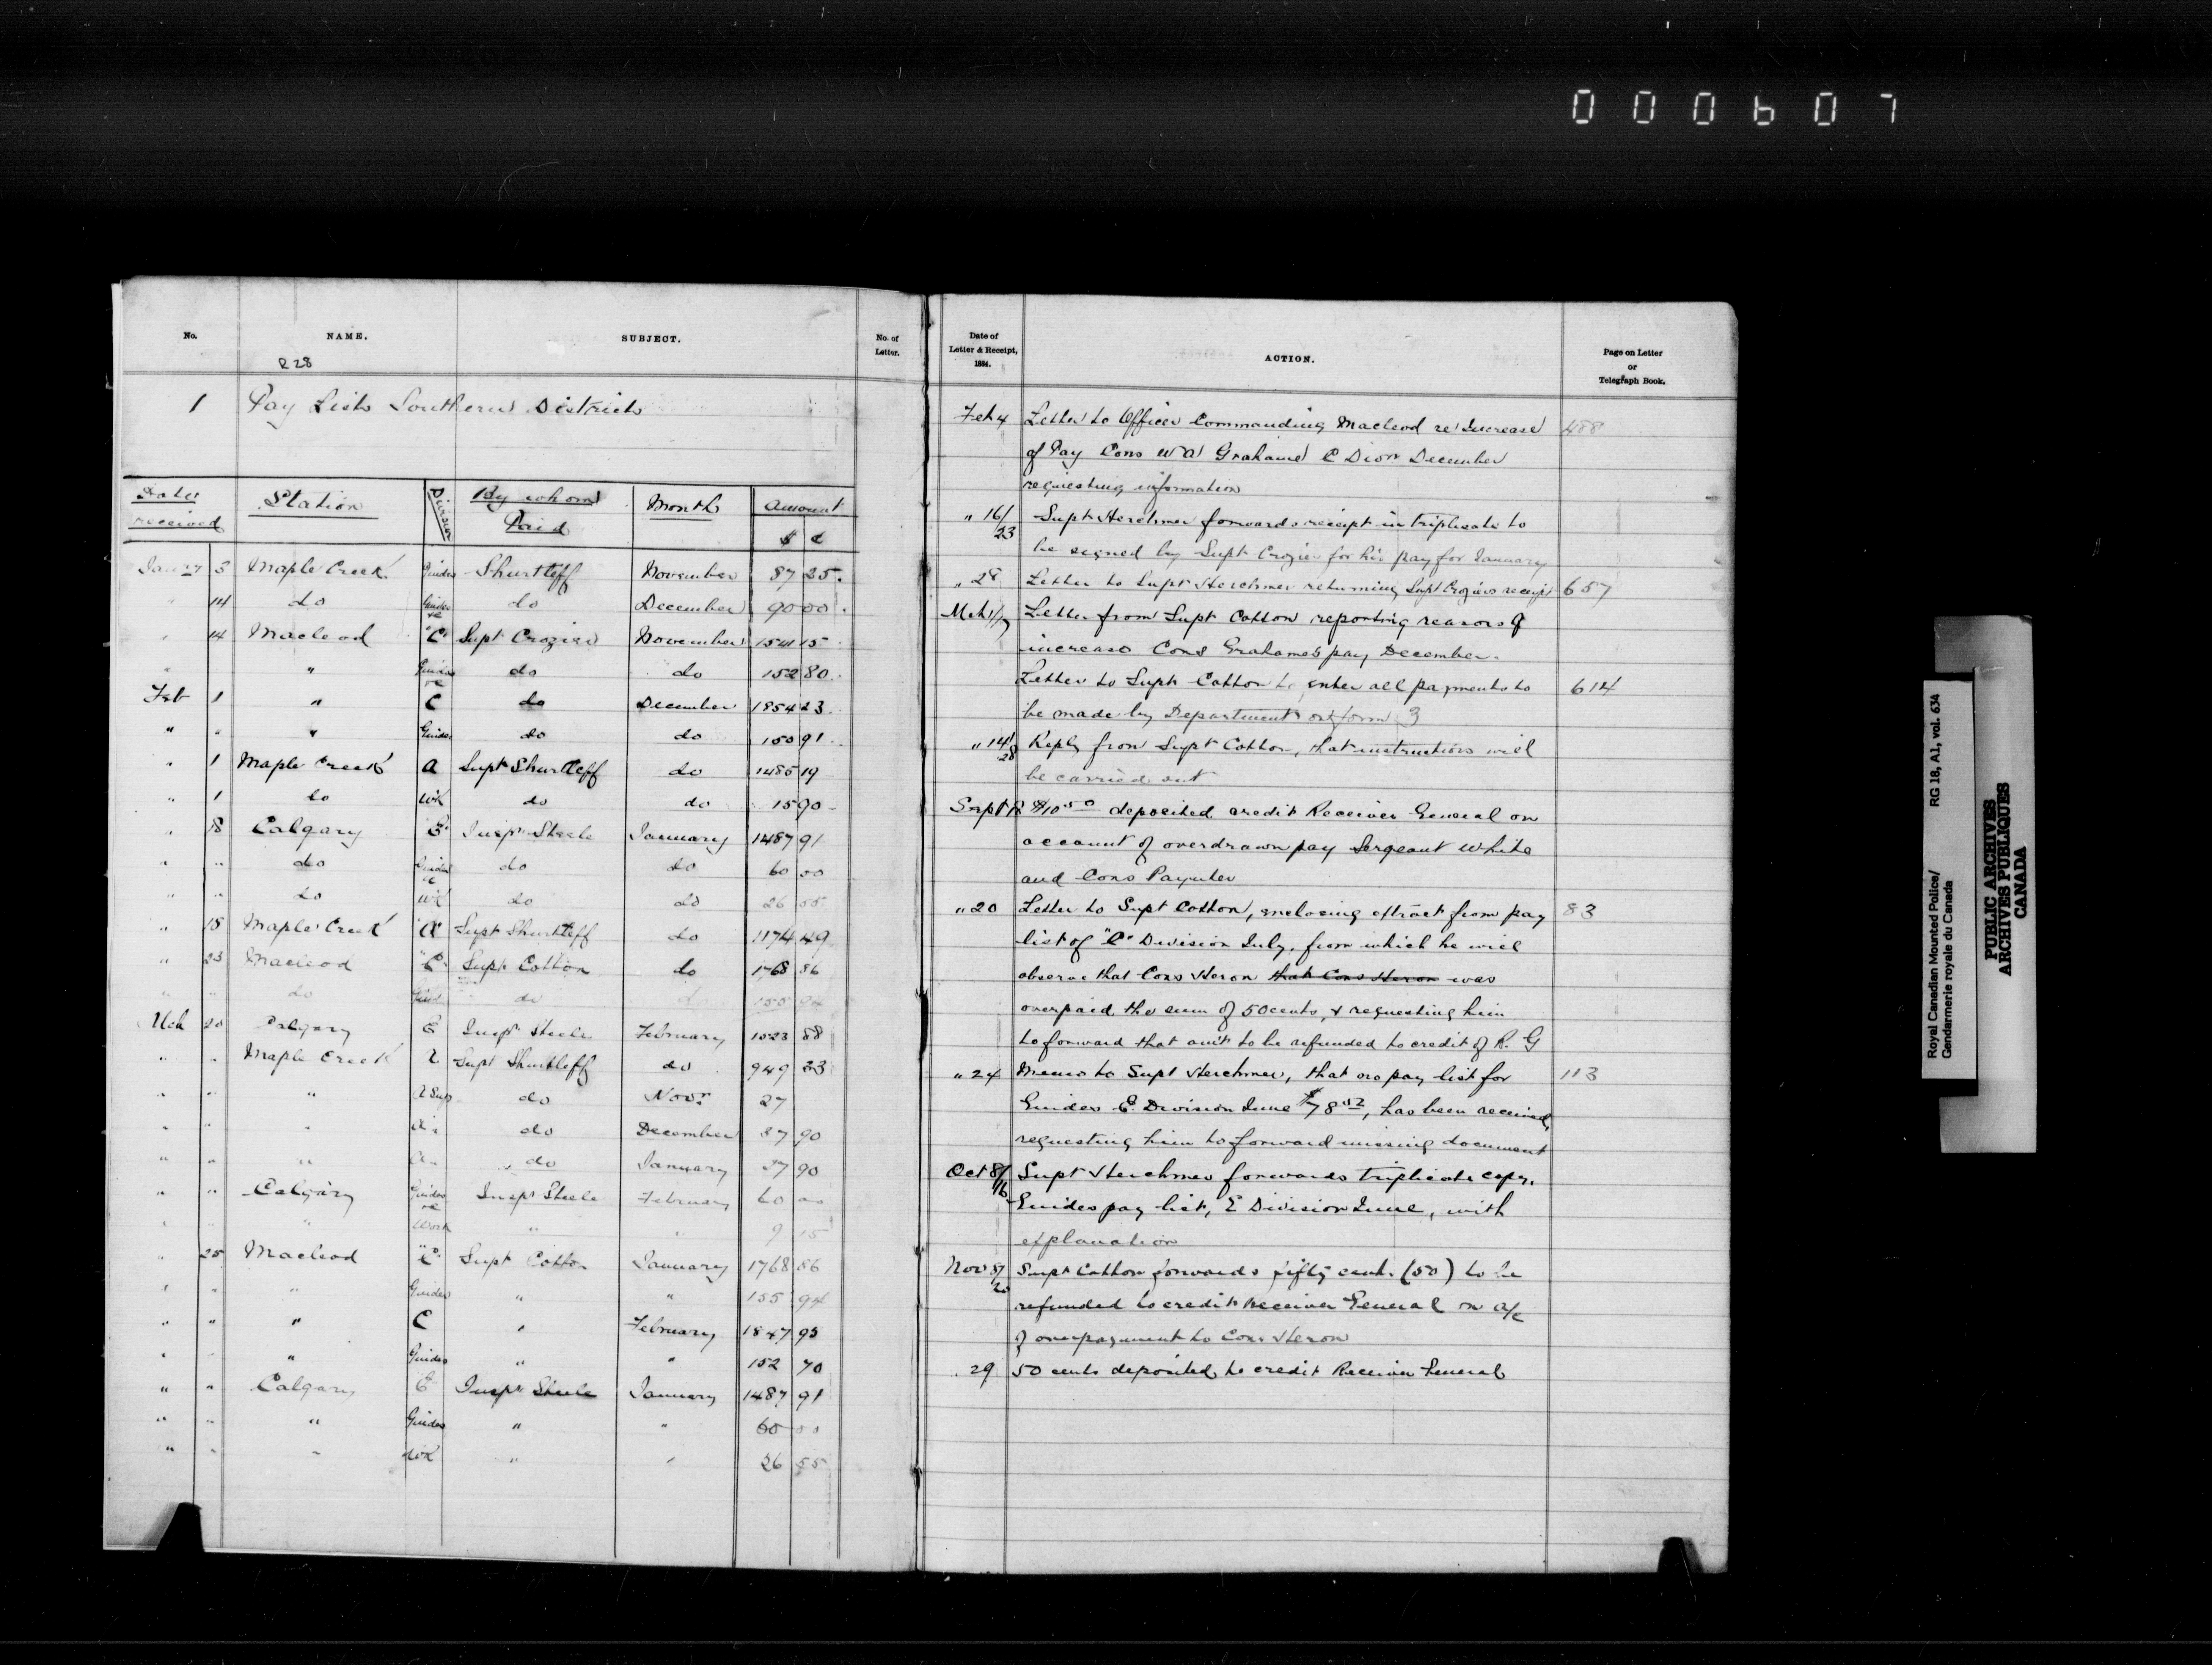 000607
No. NAME. SUBJECT. No. of Letter.
R 28
1 Pay Lists Southern Districts
Date received Station Division By whom Paid Month Amount $ ¢
Jan'ry 3 Maple Creek Guides Shurtleff November 87 25
" 14 do Guides &c do December 90 00
" 14 Macleod "C" Supt Crozier November 1541 15
" " Guides &c do do 152 80
Feb 1 " C do December 1854 23
" " " Guides do do 150 91
" 1 Maple Creek A Supt Shurtleff do 1485 19
" 1 do WK do do 15 90
" 18 Calgary "E" Insp Steele January 1487 91
" " do Guides &c do do 60 00
" " do WK do do 26 55
" 18 Maple Creek "A" Supt Shurtleff do 1174 49
" 23 Macleod "C" Supt Cotton do 1768 86
" " do Guid do do 155 94
Mch 20 Calgary E Inspr Steele February 1523 88
" " Maple Creek Supt Shurtleff do 949 33
" " " A Sup do Novr 27
" " " do December 37 90
" " " do January 37 90
" " Calgary Guides &c Inspr Steele February 60 00
" " " Work " " 9 15
" 25 Macleod "C" Supt Cotton January 1768 86
" " " Guides " " 155 94
" " " C " February 1847 95
" " " Guides " " 152 70
" " Calgary E Inspr Steele January 1487 91
" " " Guides " " 60 00
" " " WK " " 26 55
Date of Letter & Receipt, 1884. ACTION. Page on Letter or Telegraph Book.
Feb 4 Letter to Officer Commanding Macleod re Increase 488
of Pay Cons W A Grahame C Dion December
requesting information
" 16/23 Supt Herchmer forwards receipt in triplicate to
be signed by Supt Crozier for his pay for January
" 28 Letter to Supt Herchmer returning Supt Croziers receipt 657
Mch 1/7 Letter from Supt Cotton reporting reasons of
increase Cons Grahames pay December.
Letter to Supt Cotton to enter all payments to 614
be made by Department on form 3
" 14/28 Reply from Supt Cotton, that instructions will
be carried out
Sept $10 50 deposited credit Receiver General on
account of overdrawn pay Sergeant White
and Cons Paynter
" 20 Letter to Supt Cotton, enclosing extract from pay 83
list of "C" Division July, from which he will
observe that Cons Heron that Cons Heron was
overpaid the sum of 50 cents, & requesting him
to forward that amt to be refunded to credit of R. G
" 24 Memo to Supt Herchmer, that no pay list for 113
Guides E Division June $78 52, has been received,
requesting him to forward missing document
Oct 8/16 Supt Herchmer forwards triplicate copy,
Guides pay list, E Division June, with
explanation
Nov 8/20 Supt Cotton forwards fifty cents (50) to be
refunded to credit Receiver General on a/c
of overpayment to Cons Heron
29 50 cents deposited to credit Receiver General
Royal Canadian Mounted Police/ RG 18, A1, vol. 634
Gendarmerie royale du Canada
PUBLIC ARCHIVES
ARCHIVES PUBLIQUES
CANADA